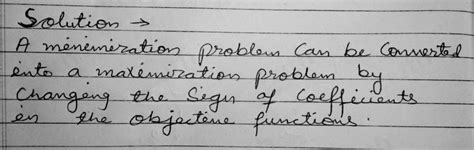 Solution →
A menemezation problem Can be Converted
into a maxemization problem by
Changeng the Sign of Coefficients
en the objective functions.